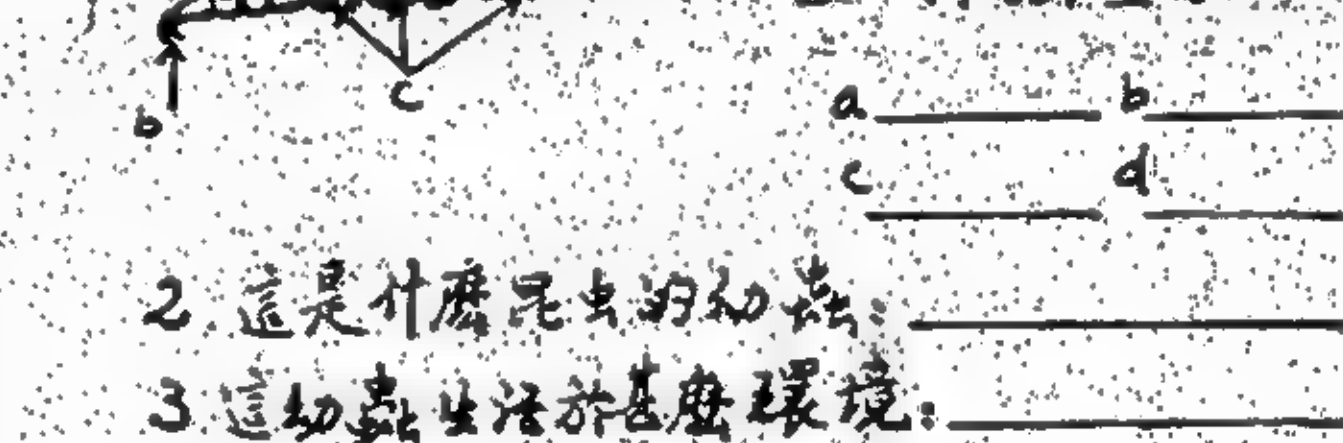 b
c
a b
c d
2 這是什麽昆虫的幼蟲:
3 這幼蟲生活於甚麽環境: